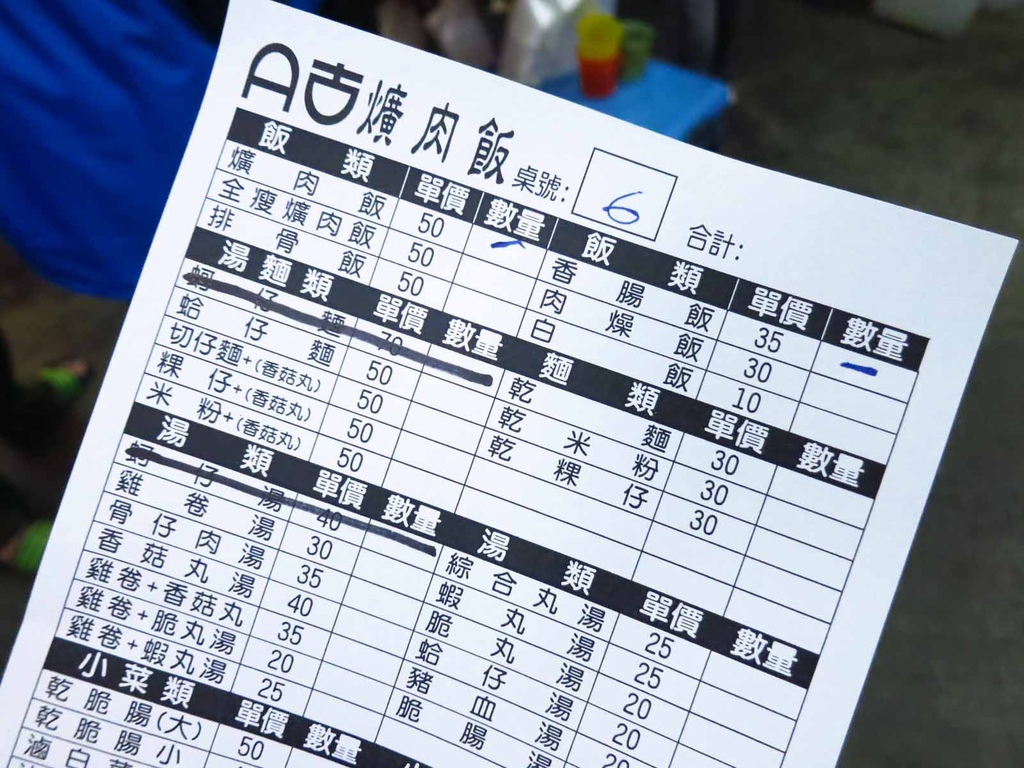 A吉爌肉飯 桌號: 6 合計:
飯類 單價 數量 飯類 單價 數量
爌肉飯 50 一 香腸飯 35 一
全瘦爌肉飯 50 肉燥飯 30
排骨飯 50 白飯 10
湯麵類 單價 數量 麵類 單價 數量
蚵仔麵 70 乾麵 30
蛤仔麵 50 乾米粉 30
切仔麵+(香菇丸) 50 乾粿仔 30
粿仔+(香菇丸) 50
米粉+(香菇丸) 50
湯類 單價 數量 湯類 單價 數量
蚵仔湯 40 綜合丸湯 25
雞卷湯 30 蝦丸湯 25
骨仔肉湯 35 脆丸湯 20
香菇丸湯 40 蛤仔湯 20
雞卷+香菇丸 35 豬血湯 20
雞卷+脆丸湯 20 脆腸湯
雞卷+蝦丸湯 25
小菜類 單價 數量 小
乾脆腸(大) 50
乾脆腸小
滷白菜